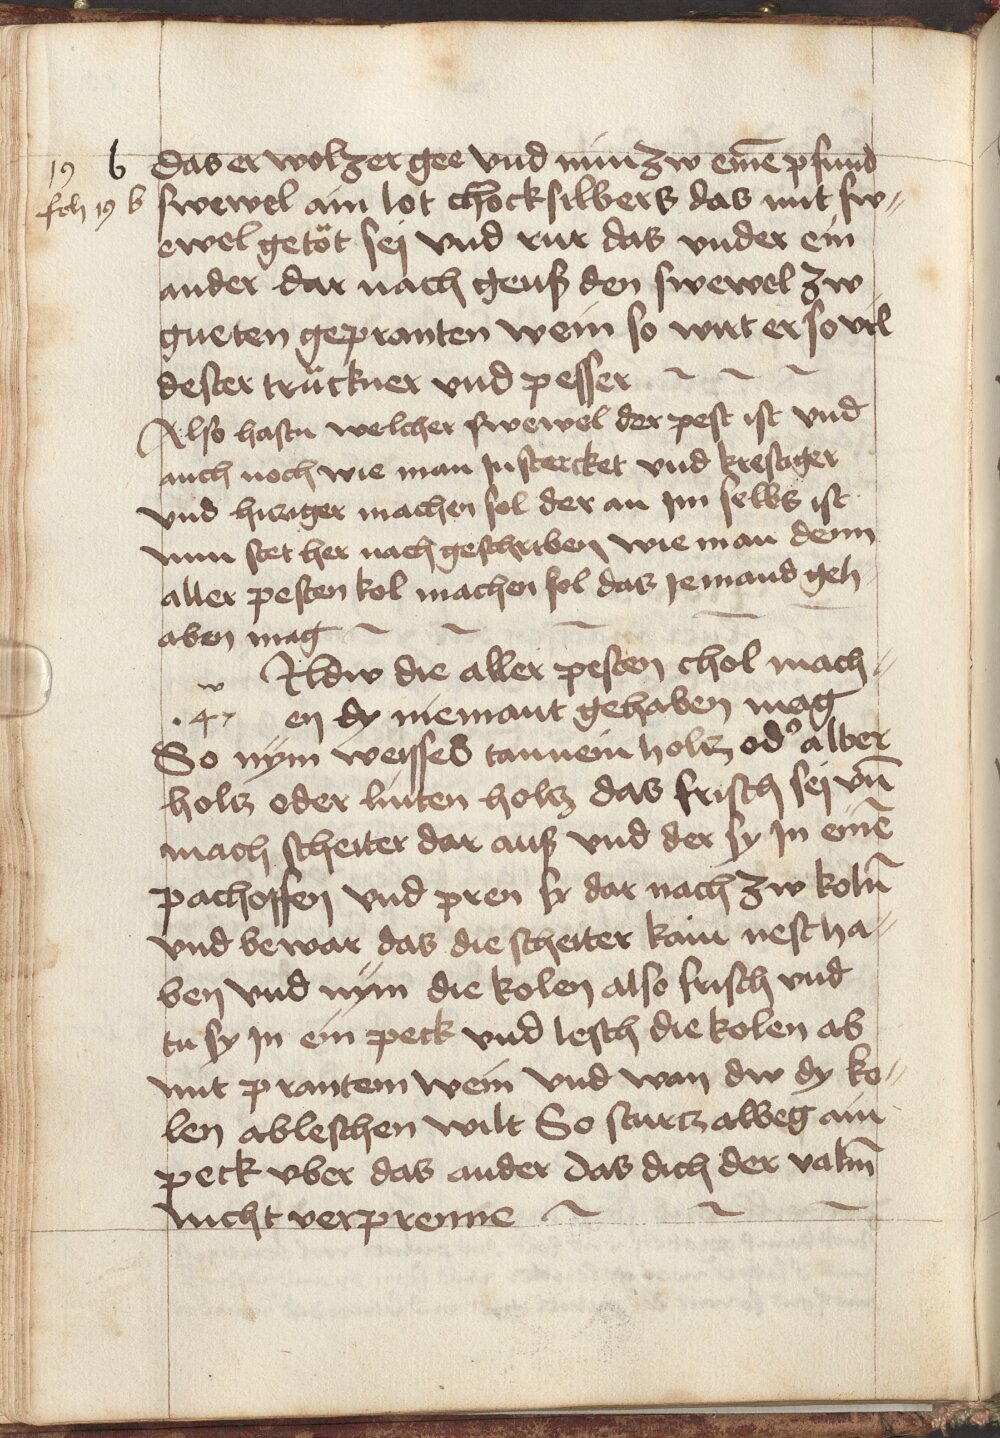 19 b das er wol zer gee vnd nim zw eine͞ pfund
fch 19 b swewel ain lot chocksilbers das mit sw„
ewel getöt sej vnd rur das vnder ein
ander dar nach geuß den swewel zw
gueten gepranten wein so wirt er so vil
dester trückner vnd pesser ~ ~ ~
Also hastu welcher swewel der pest ist vnd
auch noch wie man In stercket vnd kreftiger
vnd hicziger machen sol der an Im selbs ist
nun stet her nach geschriben wie man denn
aller pesten kol machen sol das Iemand geh
aben mag ~ ~ ~ ~ ~
Wildw die aller pesten chol mach„
.4. en dy niemant gehaben mag
So nÿm weisses tannein holtz od' alber
holtz oder linten holtz das frisch sej vn͞
mach scheitter dar auß vnd der sy In eine͞
pachoffen vnd pren sy dar nach zw koln͞
vnd bewar das die scheitter kain nest ha„
ben vnd nÿm die kolen also frisch vnd
tu sy In ein peck vnd lesch die kolen ab
mit prantem wein vnd wan dw dy ko„
len ableschen wilt So sturtz albeg ain
peck vber das ander das dich der valm͞
nicht verprenne ~ ~ ~